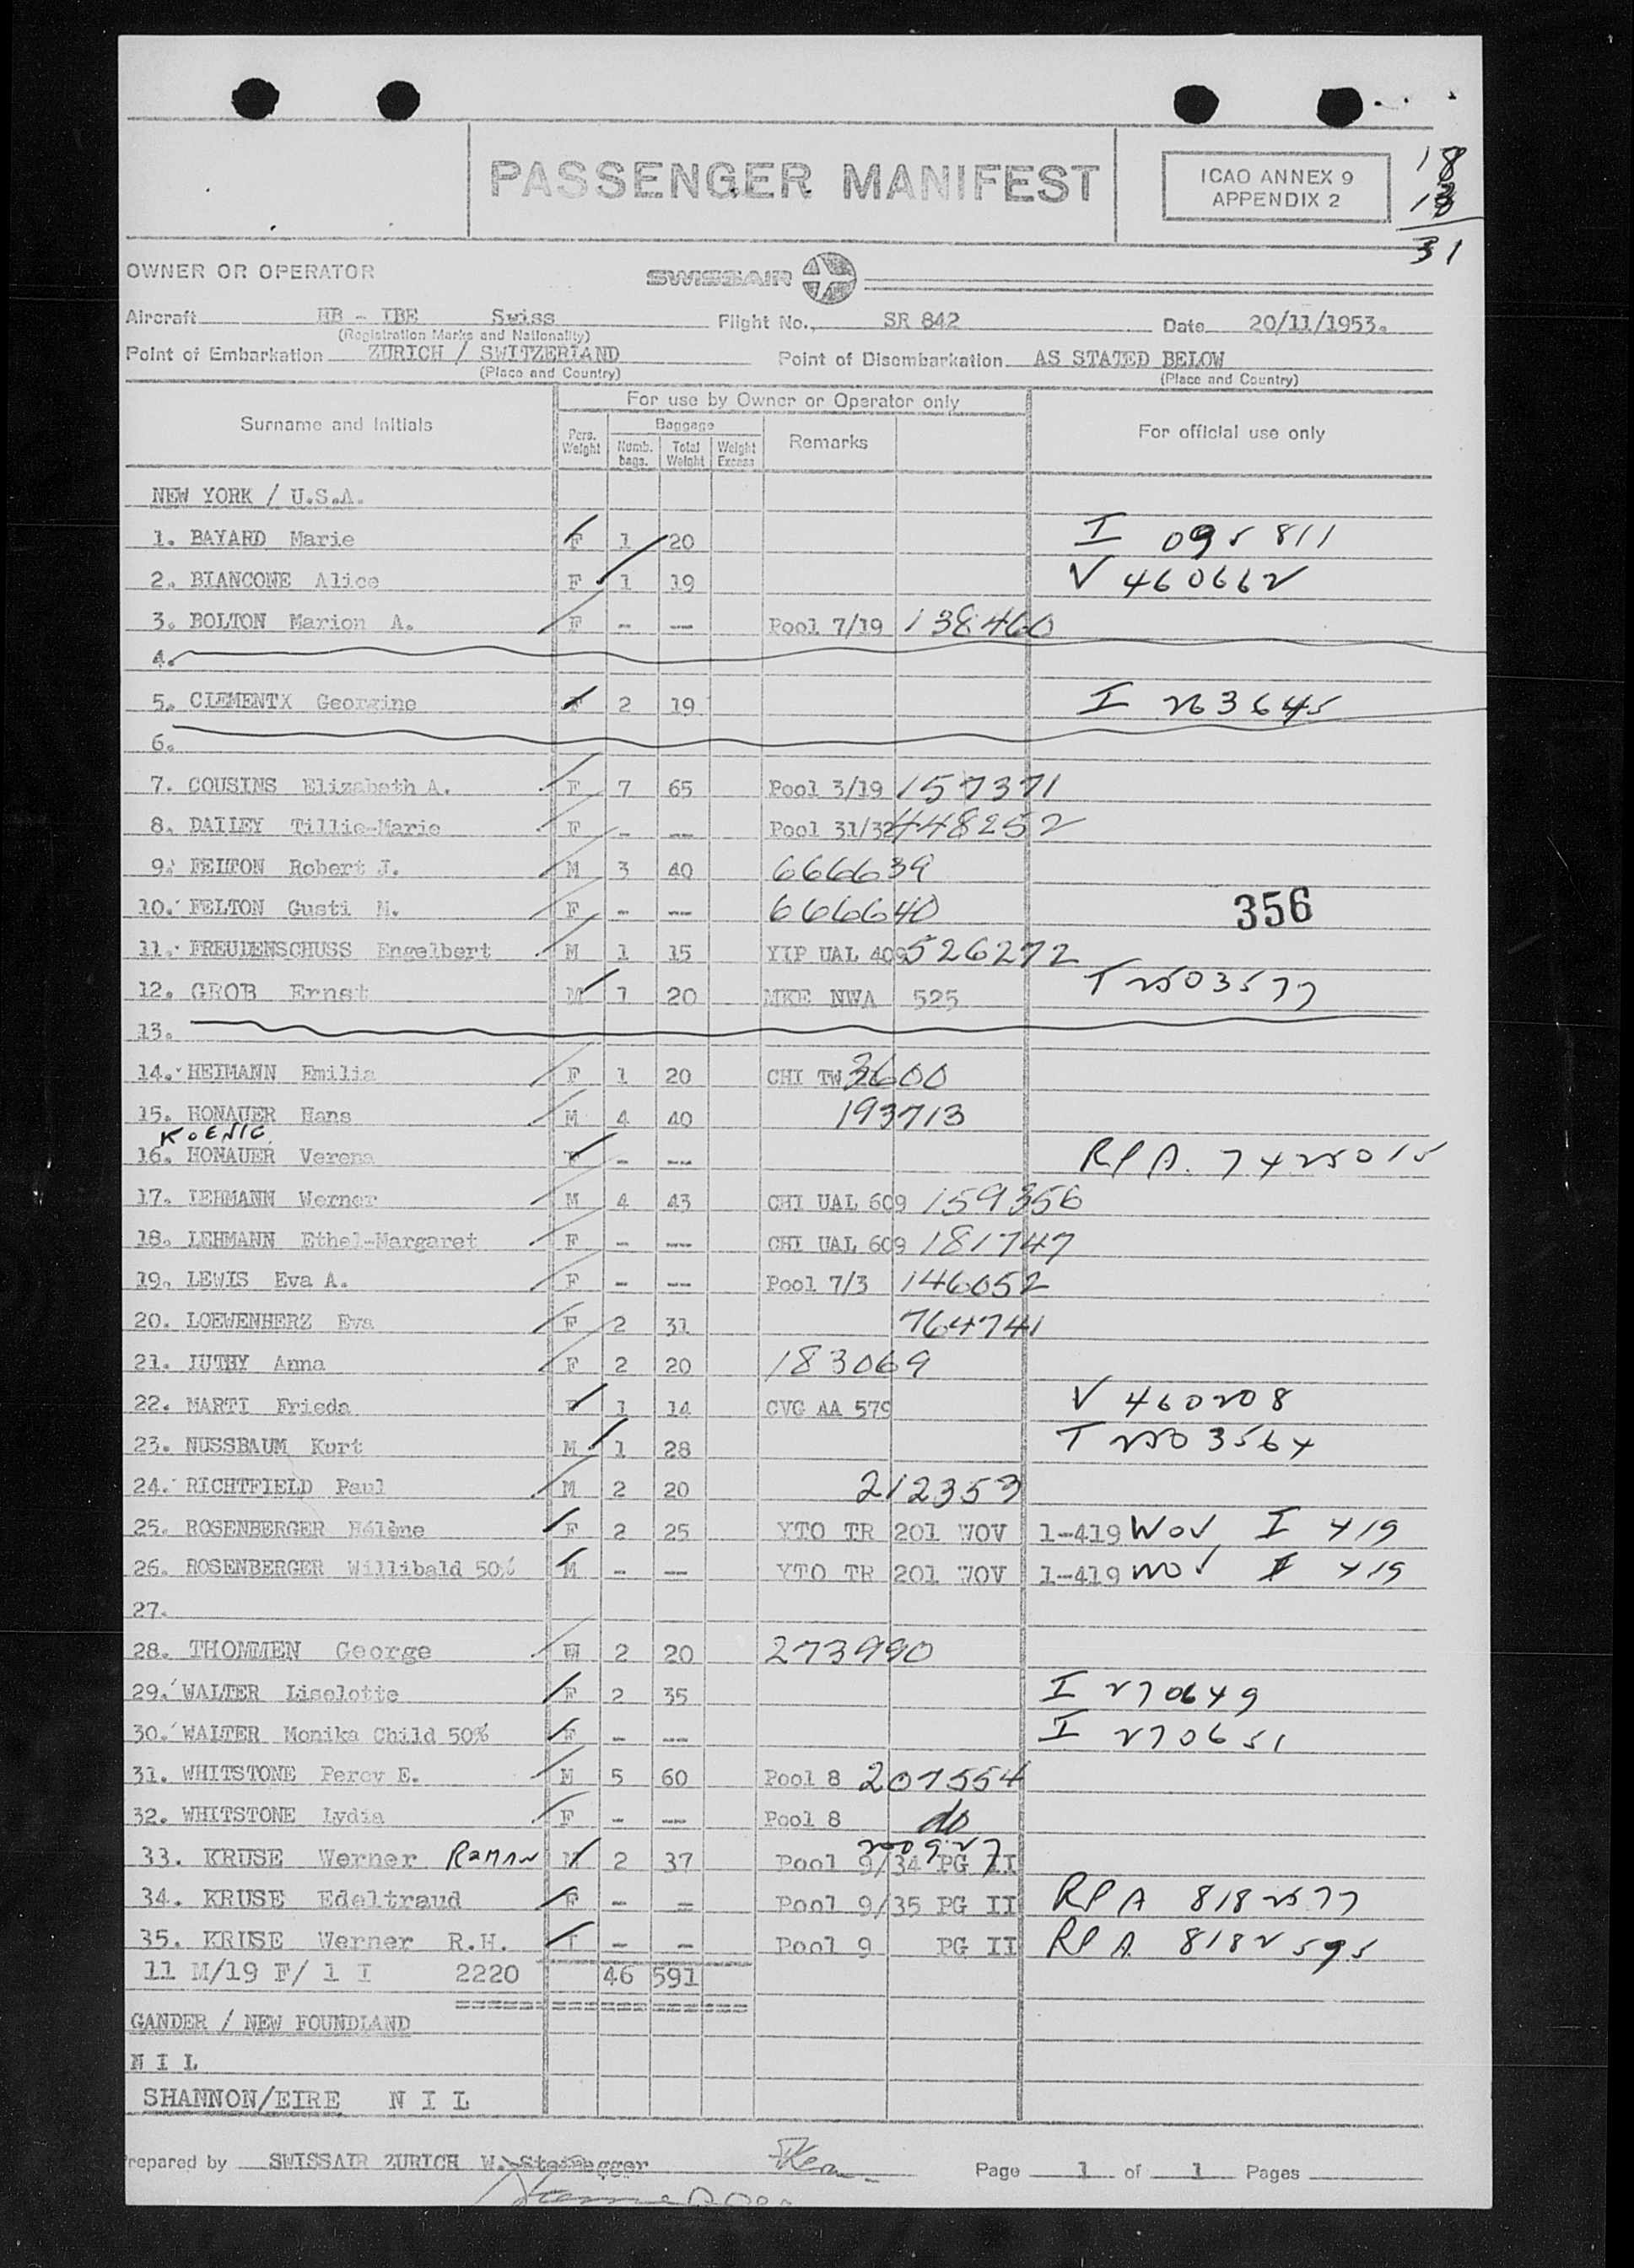 PASSENGER MANIFEST
ICAO ANNEX 9
APPENDIX 2
18
13
31
OWNER OR OPERATOR SWISSAIR
Aircraft HB - IBE Swiss Flight No., SR 842 Date 20/11/1953.
(Registration Marks and Nationality)
Point of Embarkation ZURICH / SWITZERLAND Point of Disembarkation AS STATED BELOW
(Place and Country) (Place and Country)
For use by Owner or Operator only
Surname and Initials Pers. Weight Baggage Numb. bags. Total Weight Weight Excess Remarks For official use only
NEW YORK / U.S.A.
1. BAYARD Marie F 1 20 I 095811
2. BIANCONE Alice F 1 19 V 460662
3. BOLTON Marion A. F - -- Pool 7/19 138460
4.
5. CLEMENTX Georgine F 2 19 I 263645
6.
7. COUSINS Elizabeth A. F 7 65 Pool 3/19 157371
8. DAILEY Tillie-Marie F - -- Pool 31/32 448252
9. FELTON Robert J. M 3 40 666639
10. FELTON Gusti M. F - -- 666640
356
11. FREUDENSCHUSS Engelbert M 1 15 YIP UAL 409 526272
12. GROB Ernst M 1 20 MKE NWA 525 T 2503577
13.
14. HEIMANN Emilia F 1 20 CHI TW 3600
15. HONAUER Hans M 4 40 193713
KOENIG
16. HONAUER Verena F - -- RPA. 7425015
17. LEHMANN Werner M 4 43 CHI UAL 609 159356
18. LEHMANN Ethel-Margaret F - -- CHI UAL 609 181747
19. LEWIS Eva A. F - -- Pool 7/3 146052
20. LOEWENHERZ Eva F 2 31 764741
21. LUTHY Anna F 2 20 183069
22. MARTI Frieda F 1 14 CVG AA 579 V 460208
23. NUSSBAUM Kurt M 1 28 T 2503564
24. RICHTFIELD Paul M 2 20 212353
25. ROSENBERGER Hélène F 2 25 YTO TR 201 WOV 1-419 WOV I 419
26. ROSENBERGER Willibald 50% M - -- YTO TR 201 WOV 1-419 WOV I 419
27.
28. THOMMEN George M 2 20 273990
29. WALTER Liselotte F 2 35 I 270649
30. WALTER Monika Child 50% F - -- I 270651
31. WHITSTONE Percy E. M 5 60 Pool 8 207554
32. WHITSTONE Lydia F - -- Pool 8 do
33. KRUSE Werner ROMAN M 2 37 Pool 9/34 PG II 200927
34. KRUSE Edeltraud F - - Pool 9/35 PG II RPA 8182577
35. KRUSE Werner R.H. I - - Pool 9 PG II RPA 8182595
11 M/19 F/ 1 I 2220 46 591
GANDER / NEW FOUNDLAND
N I L
SHANNON/EIRE N I L
Prepared by SWISSAIR ZURICH W. Steinegger Page 1 of 1 Pages